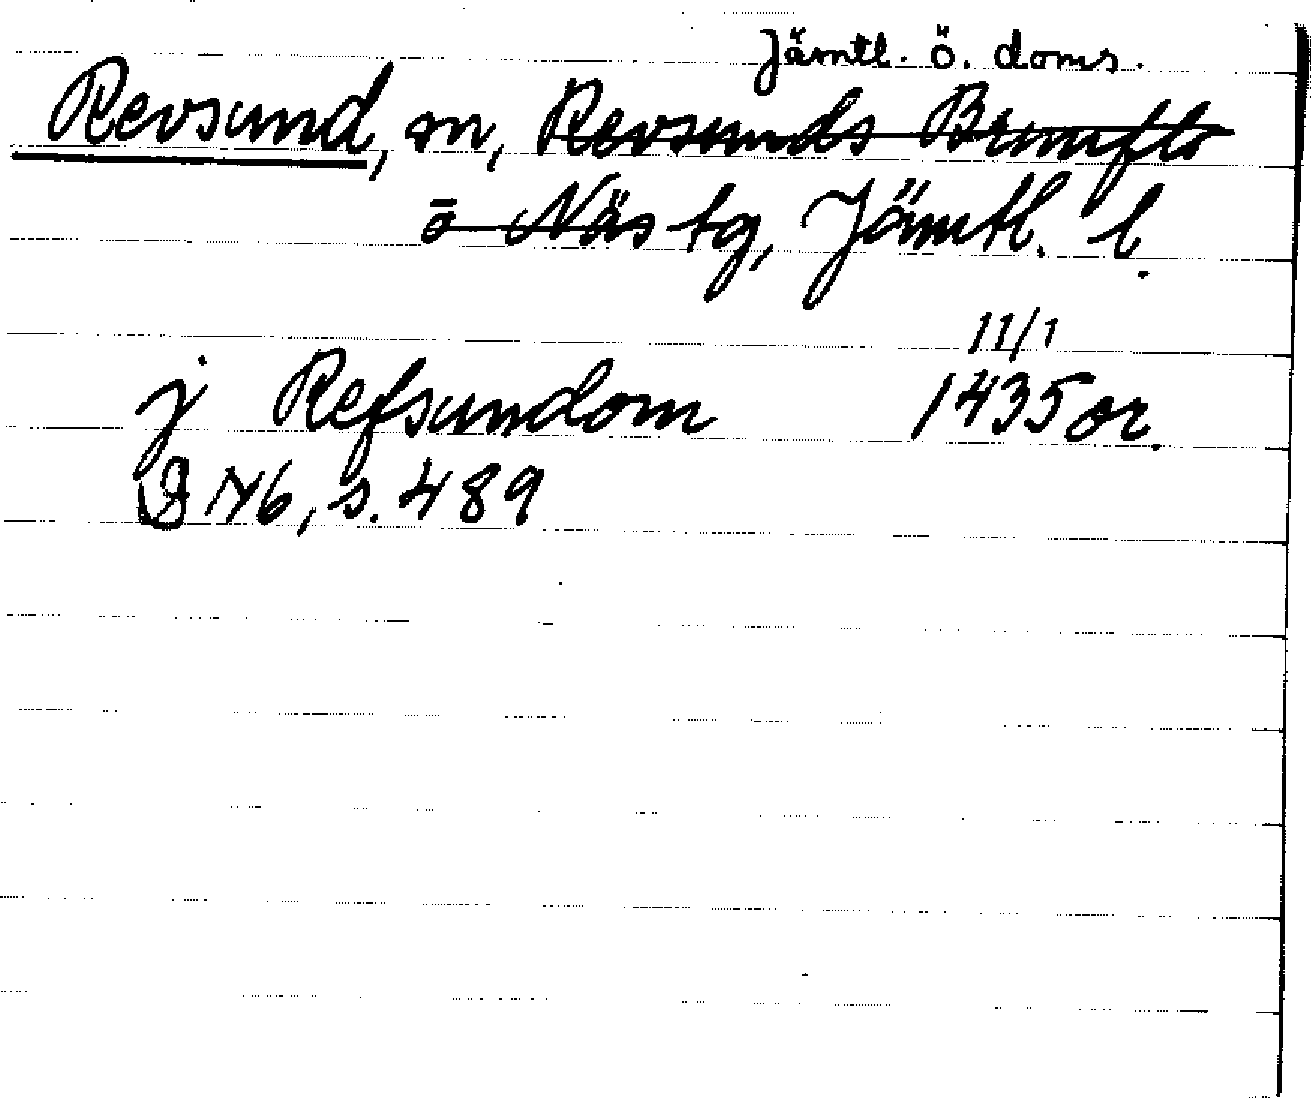 Jämtl. ö. doms.
Revsund, sn, Revsunds Brunflo
o Näs tg, Jämtl. l.
11/1
j Refsundom 1435 or.
D N6, s. 489